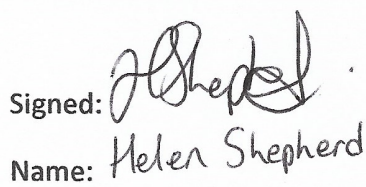 Signed: HShepherd
Name: Helen Shepherd